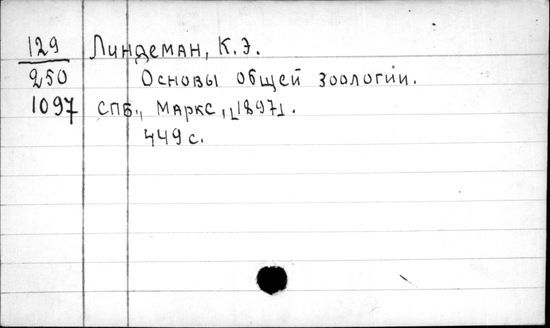 129 Линдеман, К.Э.
250 Основы общей зоологии.
1097 СПб., Маркс, [1897].
449 с.